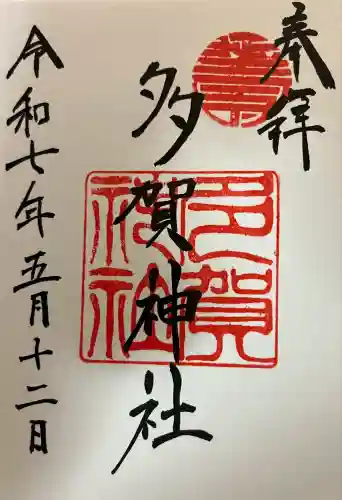 奉拝
多賀神社
令和七年五月十二日
多賀
神社